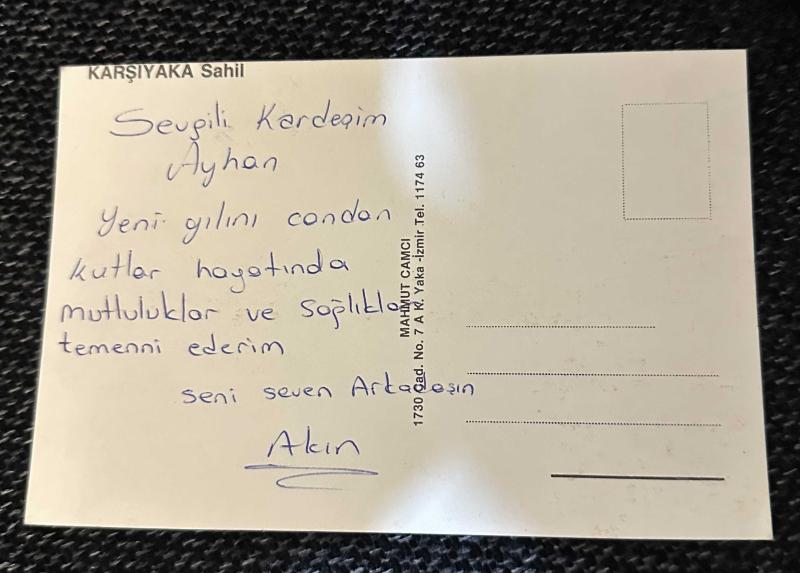 KARŞIYAKA Sahil
Sevgili Kardeşim
Ayhan
Yeni yılını candan
kutlar hayatında
mutluluklar ve sağlıklar
temenni ederim
seni seven Arkadaşın
Akın
MAHMUT CAMCI
1730 Cad. No. 7 A K. Yaka -İzmir Tel. 1174 63